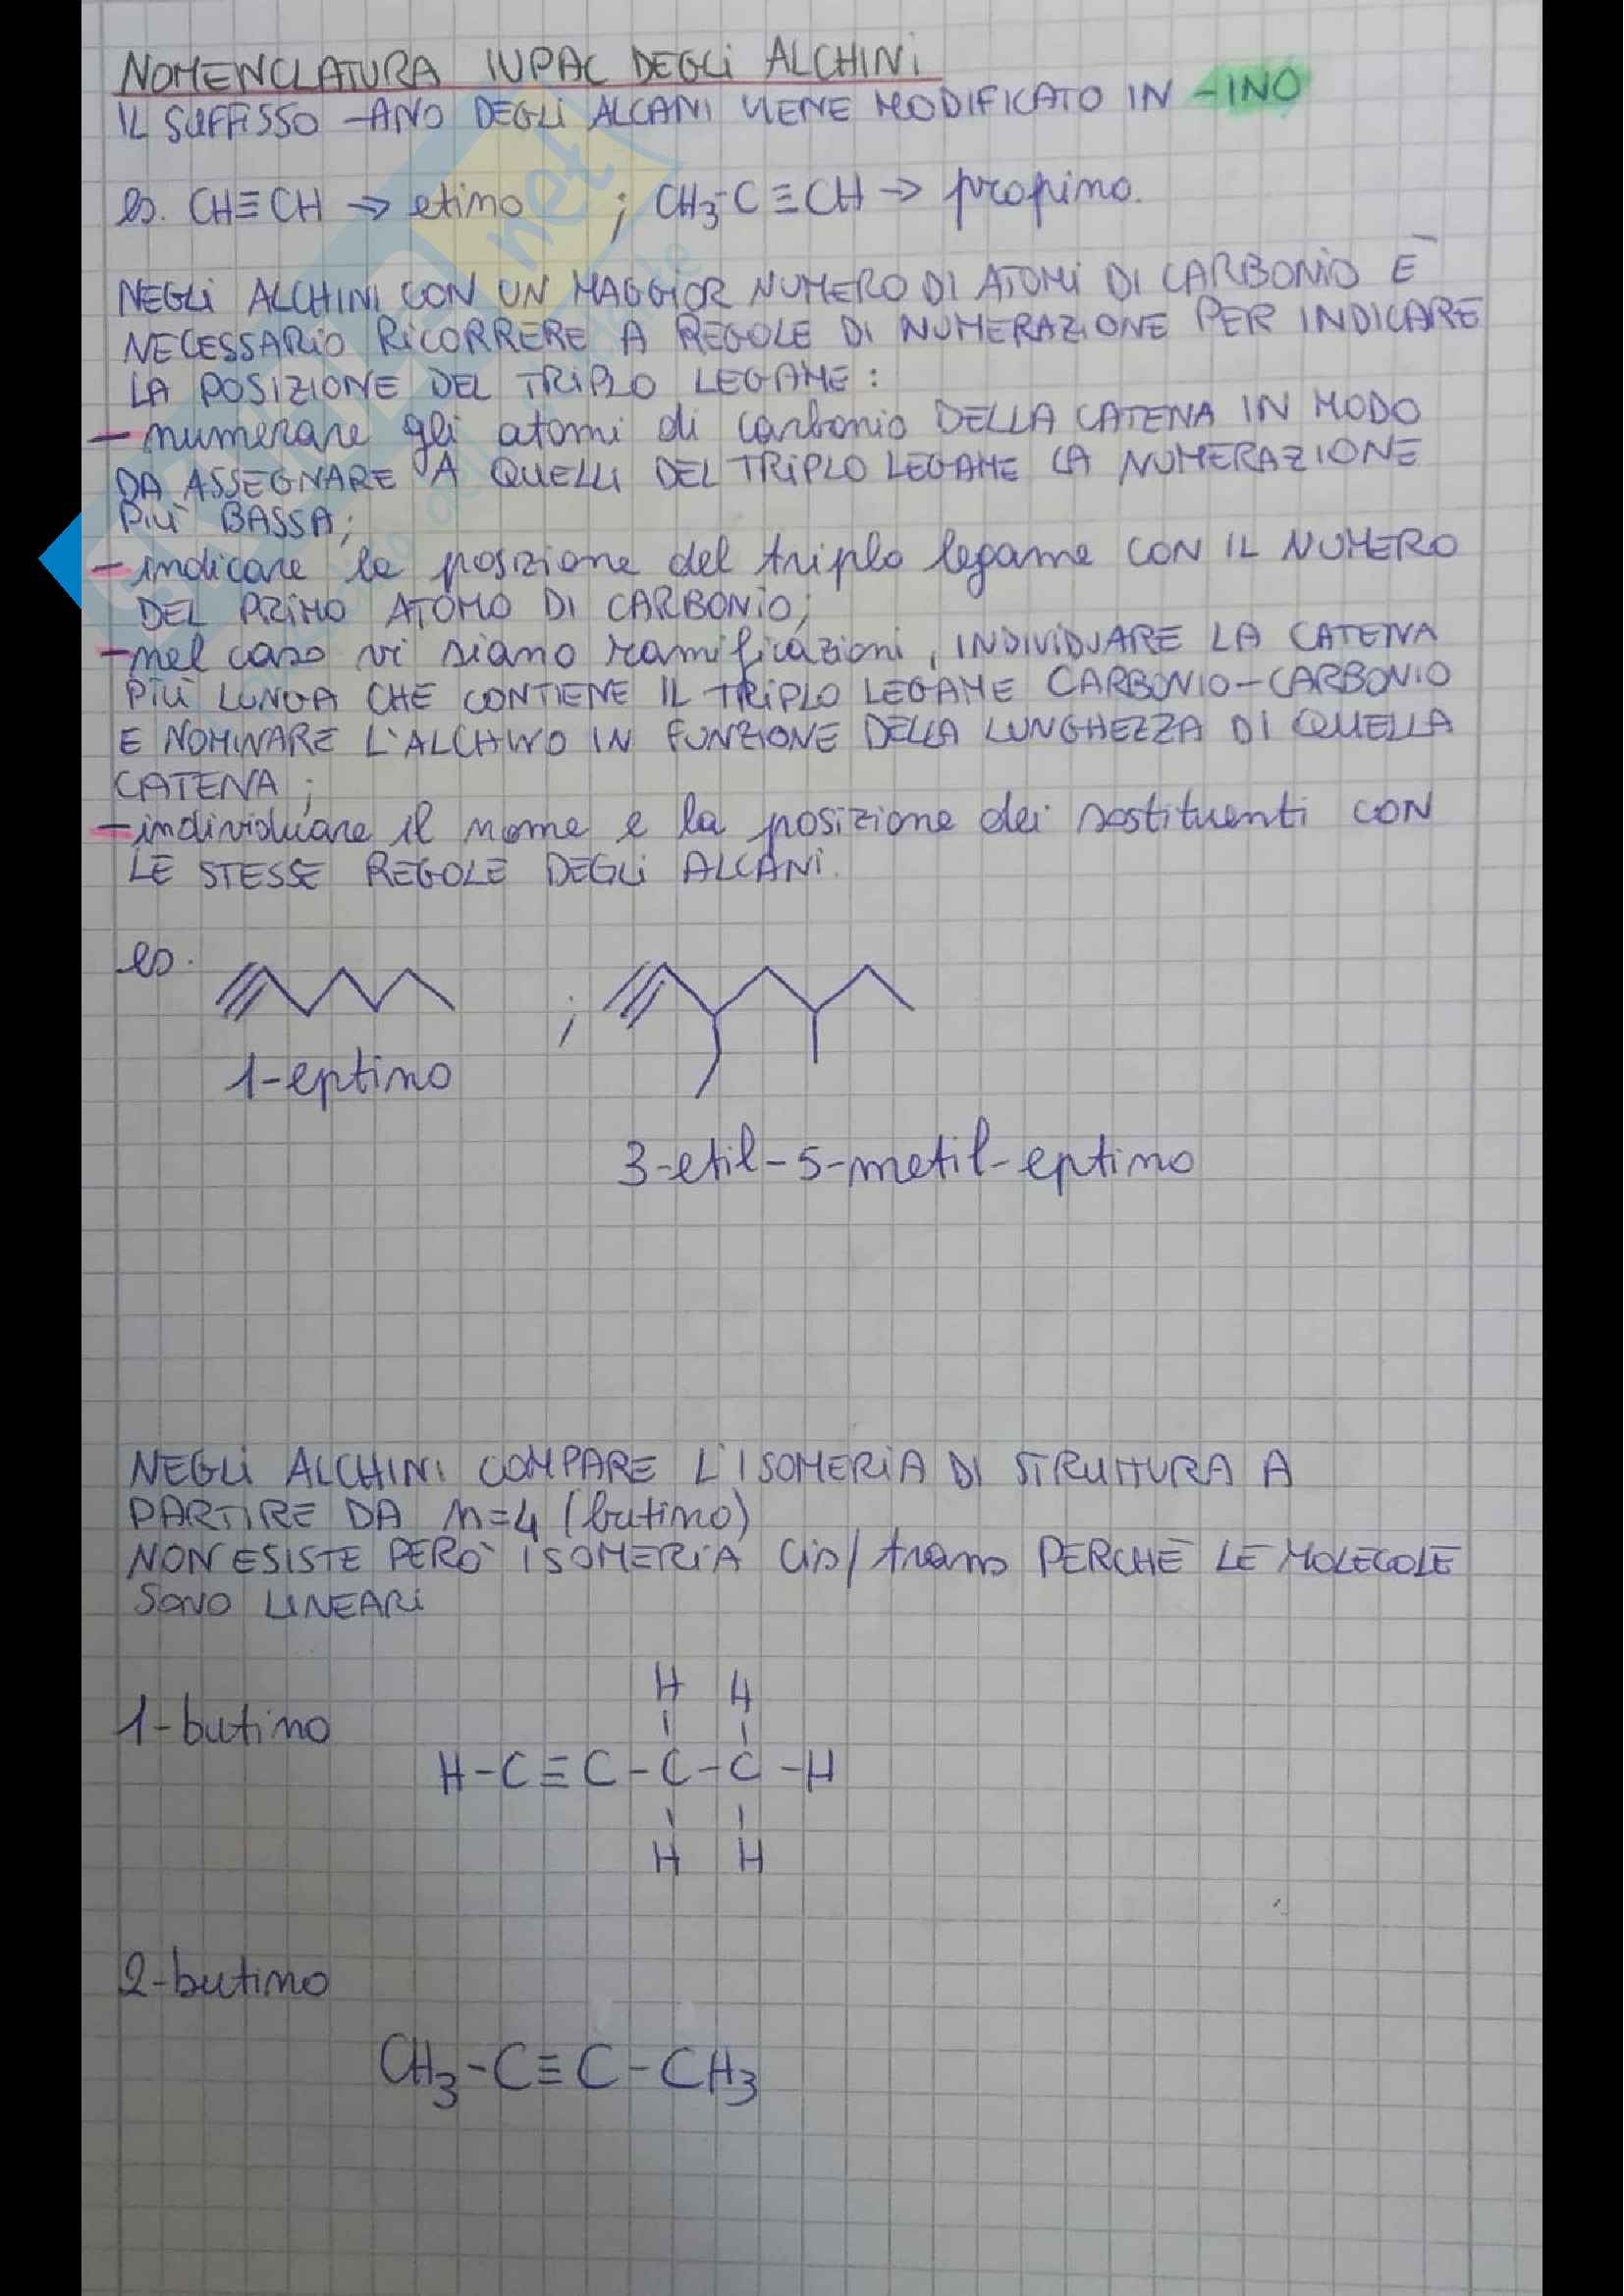 NOMENCLATURA IUPAC DEGLI ALCHINI
IL SUFFISSO -ANO DEGLI ALCANI VIENE MODIFICATO IN -INO
es. CH≡CH → etino ; CH₃-C≡CH → propino.
NEGLI ALCHINI CON UN MAGGIOR NUMERO DI ATOMI DI CARBONIO È
NECESSARIO RICORRERE A REGOLE DI NUMERAZIONE PER INDICARE
LA POSIZIONE DEL TRIPLO LEGAME:
- numerare gli atomi di carbonio DELLA CATENA IN MODO
DA ASSEGNARE A QUELLI DEL TRIPLO LEGAME LA NUMERAZIONE
PIÙ BASSA;
- indicare la posizione del triplo legame CON IL NUMERO
DEL PRIMO ATOMO DI CARBONIO;
- nel caso vi siano ramificazioni, INDIVIDUARE LA CATENA
PIÙ LUNGA CHE CONTIENE IL TRIPLO LEGAME CARBONIO-CARBONIO
E NOMINARE L'ALCHINO IN FUNZIONE DELLA LUNGHEZZA DI QUELLA
CATENA;
- individuare il nome e la posizione dei sostituenti CON
LE STESSE REGOLE DEGLI ALCANI.
es.
;
1-eptino
3-etil-5-metil-eptino
NEGLI ALCHINI COMPARE L'ISOMERIA DI STRUTTURA A
PARTIRE DA n=4 (butino)
NON ESISTE PERÒ ISOMERIA cis/trans PERCHÈ LE MOLECOLE
SONO LINEARI
1-butino
H H
H-C≡C-C-C-H
H H
2-butino
CH₃-C≡C-CH₃